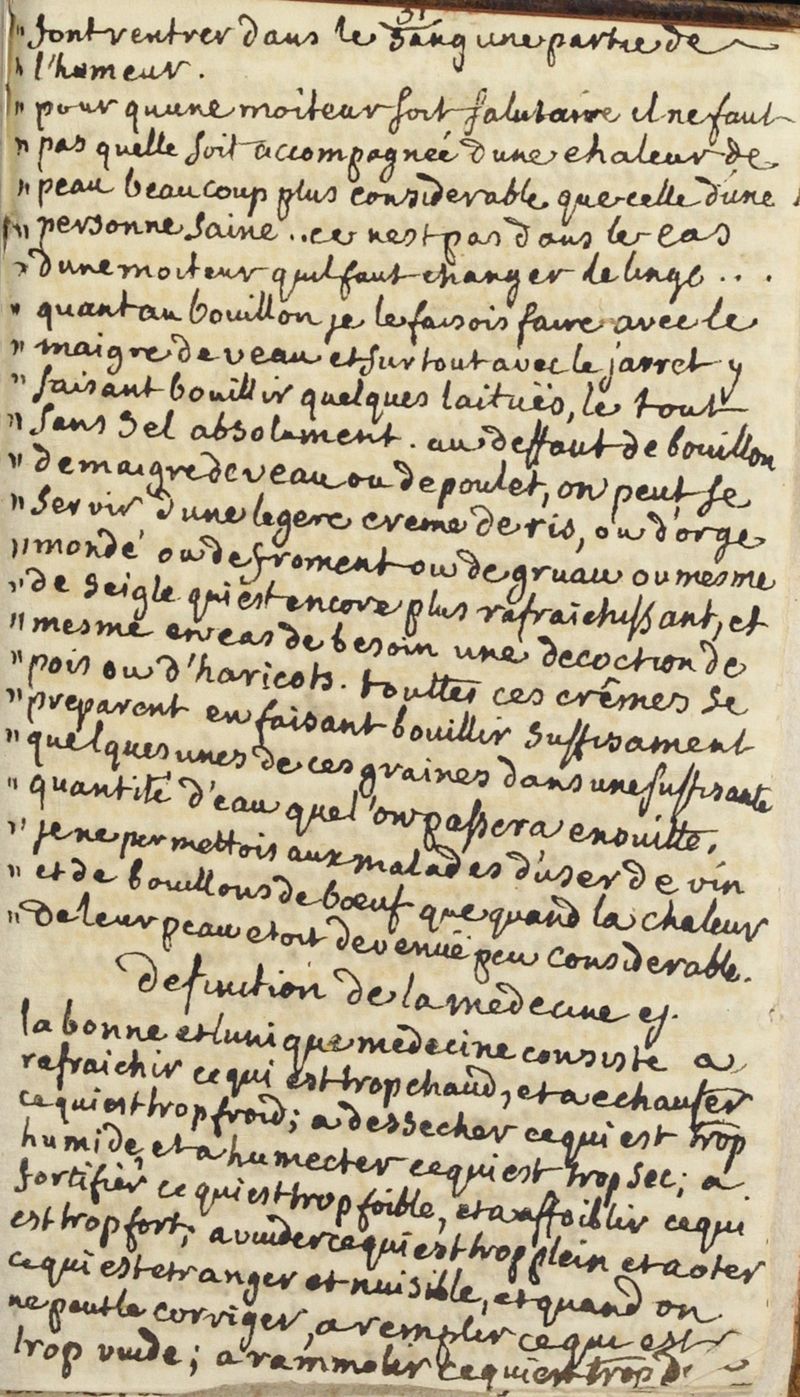 51
" font rentrer dans le sang une partie de
" l'humeur.
" pour quune moiteur soit salutaire il ne faut
" pas quelle soit accompagneé dune chaleur de
" peau beaucoup plus considerable que celle d'une
" personne saine .. ce nest pas dans le cas
" dune moiteur quil faut changer de linge ...
" quant au bouillon je le faisois faire avec le
" maigre de veau et surtout avec le jarret y
" faisant bouillir quelques laituës, le tout
" sans sel absolument. au deffaut de bouillon
" de maigre de veau ou de poulet, on peut se
" servir d'une legere creme de ris, ou d'orge
" mondé ou de froment ou de gruau ou mesme
" de seigle qui est encore plus rafraichissant, et
" mesme en cas de besoin une decoction de
" pois ou d'haricots. touttes ces crêmes se
" preparent en faisant bouillir suffisament
" quelques unes de ces graines dans une suffisante
" quantité d'eau que l'on passera ensuitte.
" je ne permettois aux malades d'user de vin
" et de bouillons de bœuf que quand la chaleur
" de leur peau etoit devenuë peu considerable.
definition de la medecine
la bonne et lunique medecine consiste a
rafraichir ce qui est trop chaud, et a echaufer
ce qui est trop froid; a dessecher ce qui est trop
humide, et a humecter ce qui est trop sec; a
fortifier ce qui est trop foible, et a affoiblir ce qui
est trop fort; a vuider ce qui est trop plein et a oter
ce qui est etranger et nuisible, et quand on
ne peut le corriger, a remplir ce qui est
trop vuide; a rammolir ce qui est trop